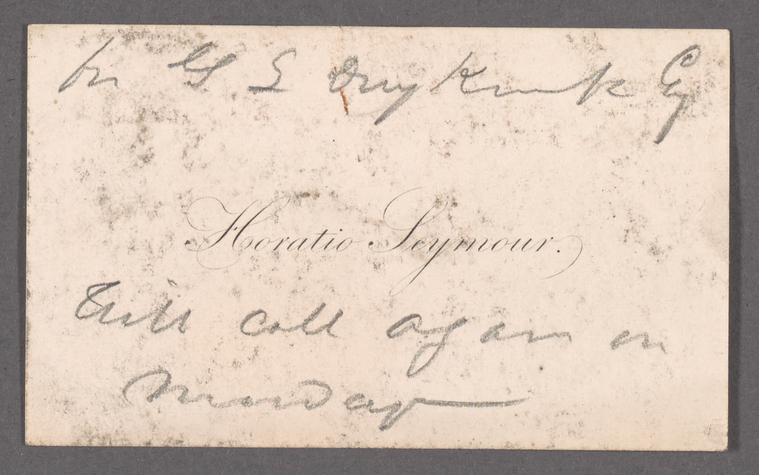 for G S
Horatio Seymour.
Will call again on
Monday